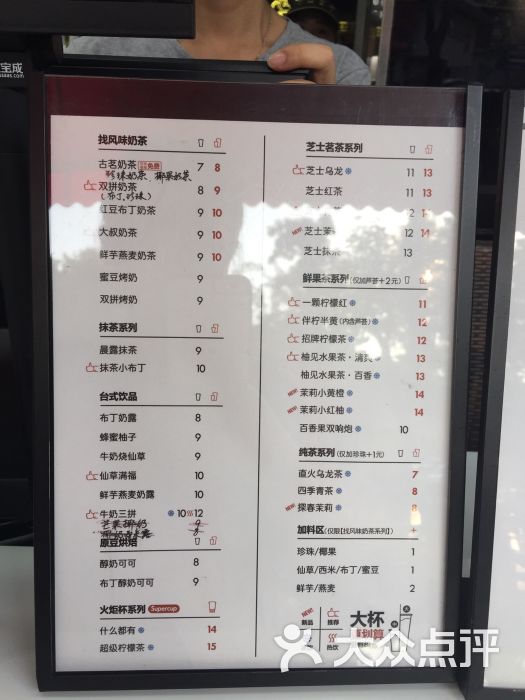 宝成
找风味奶茶
古茗奶茶 免费 7 8
珍珠奶茶、椰果奶茶
双拼奶茶 8 9
(布丁,珍珠)
红豆布丁奶茶 9 10
大叔奶茶 9 10
鲜芋燕麦奶茶 9 10
蜜豆烤奶 9
双拼烤奶 9
抹茶系列
晨露抹茶 9
抹茶小布丁 10
台式饮品
布丁奶露 8
蜂蜜柚子 9
牛奶烧仙草 9
仙草满福 10
鲜芋燕麦奶露 10
牛奶三拼 10 12
芒果椰奶
原豆烘焙
醇奶可可 8
布丁醇奶可可 9
火炬杯系列 Supercup
什么都有 14
超级柠檬茶 15
芝士茗茶系列
芝士乌龙 11 13
芝士红茶 11 13
12 14
芝士茉 12 14
芝士抹茶 13
鲜果茶系列 (仅加芦荟+2元)
一颗柠檬红 11
伴柠半黄 (内含芦荟) 12
招牌柠檬茶 12
柚见水果茶·清爽 13
柚见水果茶·百香 13
茉莉小黄橙 14
茉莉小红柚 14
百香果双响炮 10
纯茶系列 (仅加珍珠+1元)
直火乌龙茶 7
四季青茶 8
探春茉莉 8
加料区 (仅限【找风味奶茶系列】) +
珍珠/椰果 1
仙草/西米/布丁/蜜豆 1
鲜芋/燕麦 2
NEW 新品
推荐
热饮
大杯
更划算
大众点评